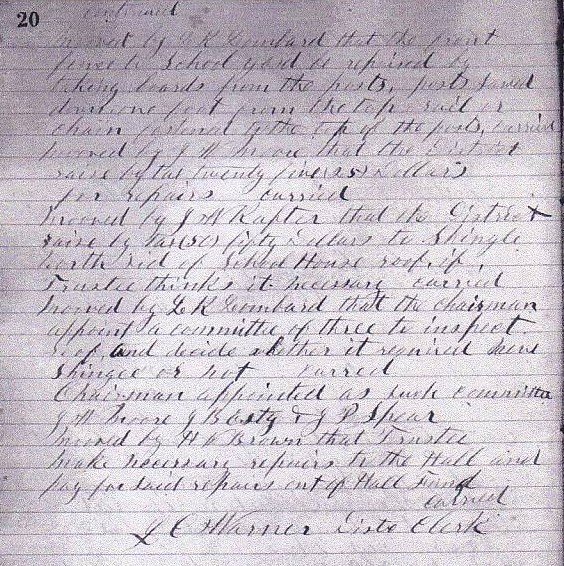 20 continued
mooved by L K Lombard that the front
fence to School yard be repaired by
taking boards from the posts, posts sawed
down one foot from the top a rail or
chain fastened to the top of the posts, carried
mooved by J W Moore that the District
raise by tax twenty five 25 Dollars
for repairs carried
mooved by J H Rapter that the District
raise by tax 50 fifty Dollars to Shingle
North side of School House roof, if
Trustee thinks it necessary carried
Mooved by L K Lombard that the Chairman
appoint a committee of three to inspect
roof, and decide whether it required new
Shingle or not carred
Chairman appointed as such committee
J W Moore J B & J P Spear
mooved by H A Brown that Trustee
make necessary repairs to the Hall and
pay for said repairs out of Hall Fund
carried
J C Warner Dists Clerk